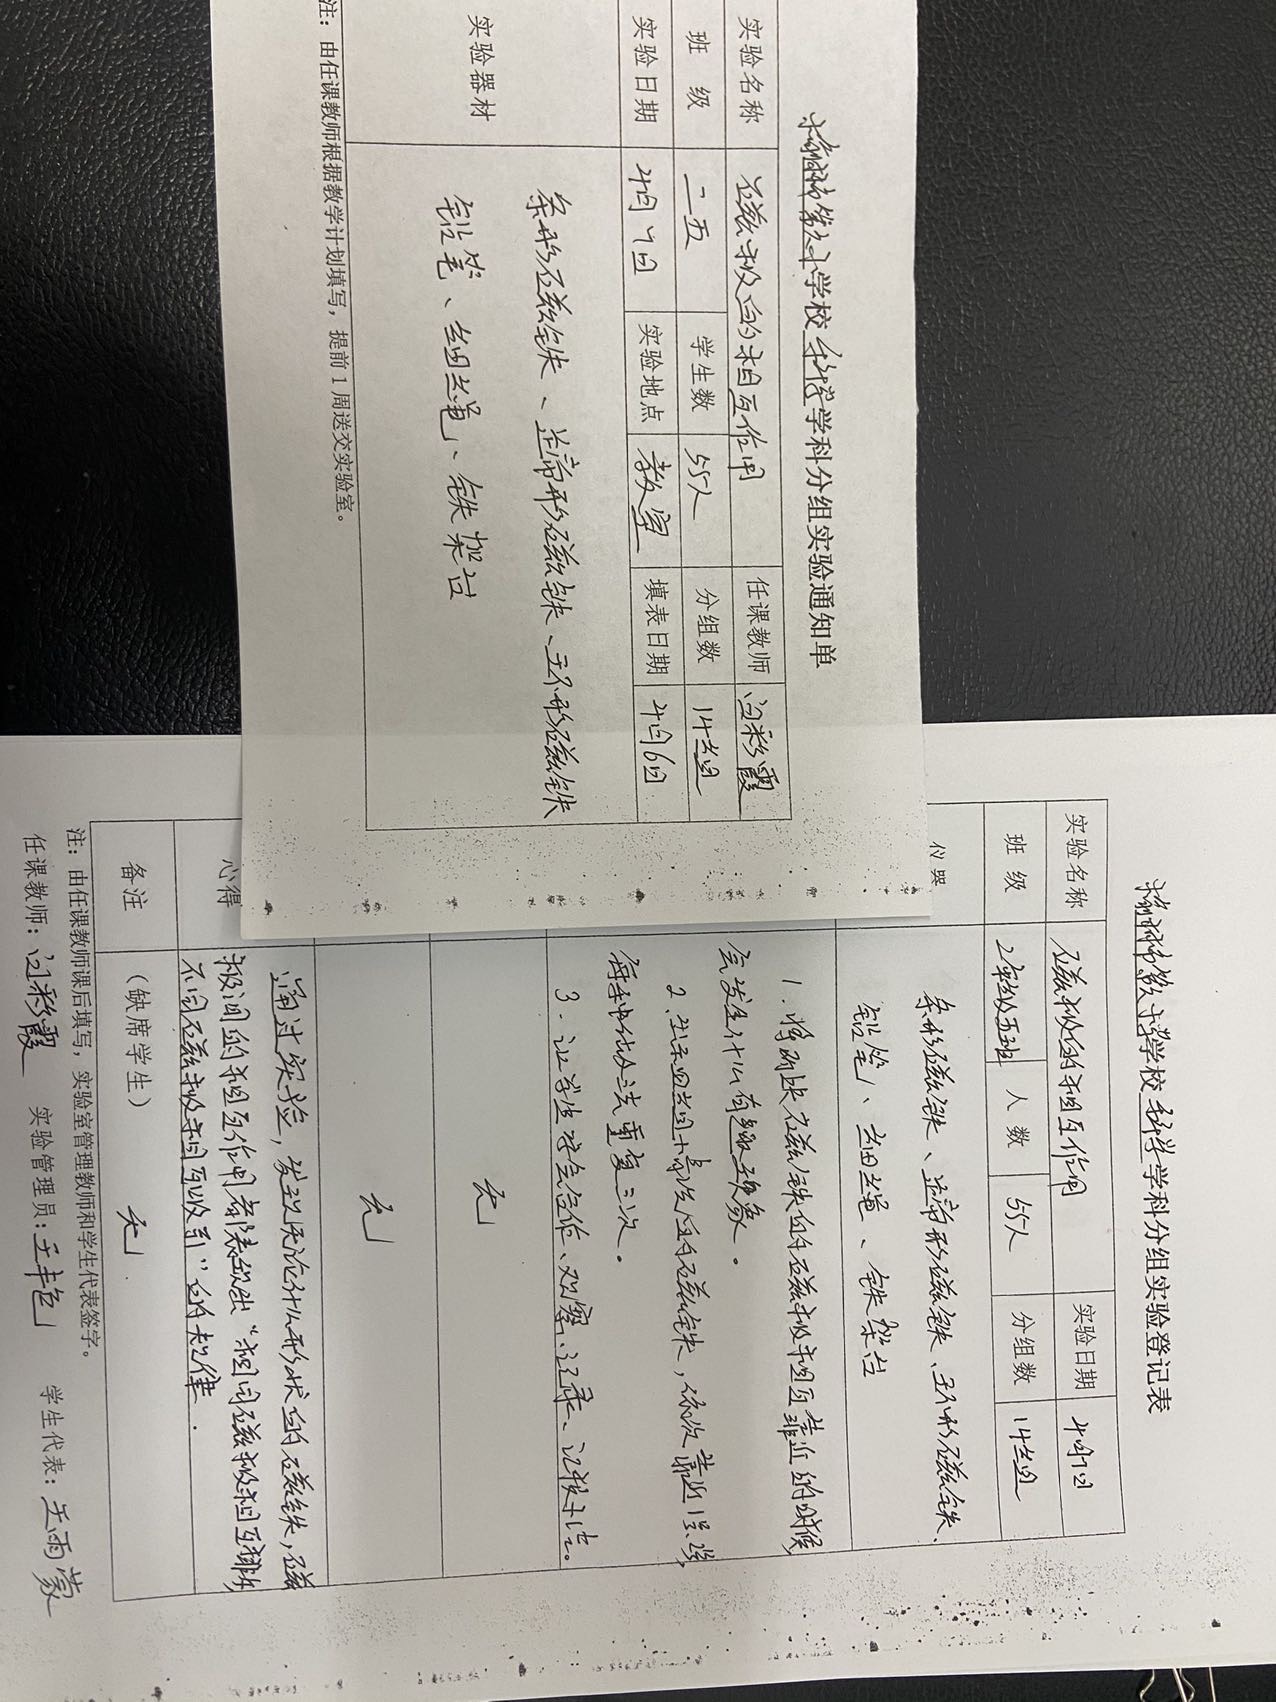 学校科学学科分组实验通知单
实验名称 磁极间的相互作用 任课教师 闫彩霞
班 级 二五 学生数 55人 分组数 14组
实验日期 4月7日 实验地点 教室 填表日期 4月6日
实验器材
条形磁铁、蹄形磁铁、环形磁铁
铅笔、细绳、铁架台
注：由任课教师根据教学计划填写，提前1周送交实验室。
学校科学学科分组实验登记表
实验名称 磁极间的相互作用 实验日期 4月7日
班 级 2年级五班 人 数 55人 分组数 14组
仪器
条形磁铁、蹄形磁铁、环形磁铁、
铅笔、细绳、铁架台
1.将两块磁铁的磁极相互靠近的时候
会发生什么有趣现象。
2.
每种做法重复三次。
3.让学生学会合作、观察、记录、
无
无
心得
通过实验，发现无论什么形状的磁铁，磁
极间的相互作用都表现出“相同磁极相互排斥
不同磁极相互吸引”的规律.
备注
（缺席学生） 无
注：由任课教师课后填写，实验室管理教师和学生代表签字。
任课教师：闫彩霞 实验管理员：王丰色 学生代表：王雨蒙